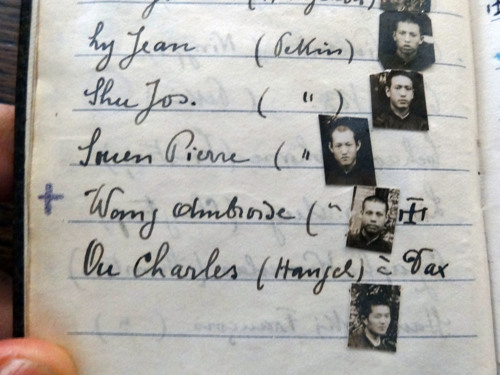 Ly Jean (Pekin)
Shu Jos. ( " )
Souen Pierre ( "
Wang Ambroise ( "
Ou Charles (Hangch) à Dax